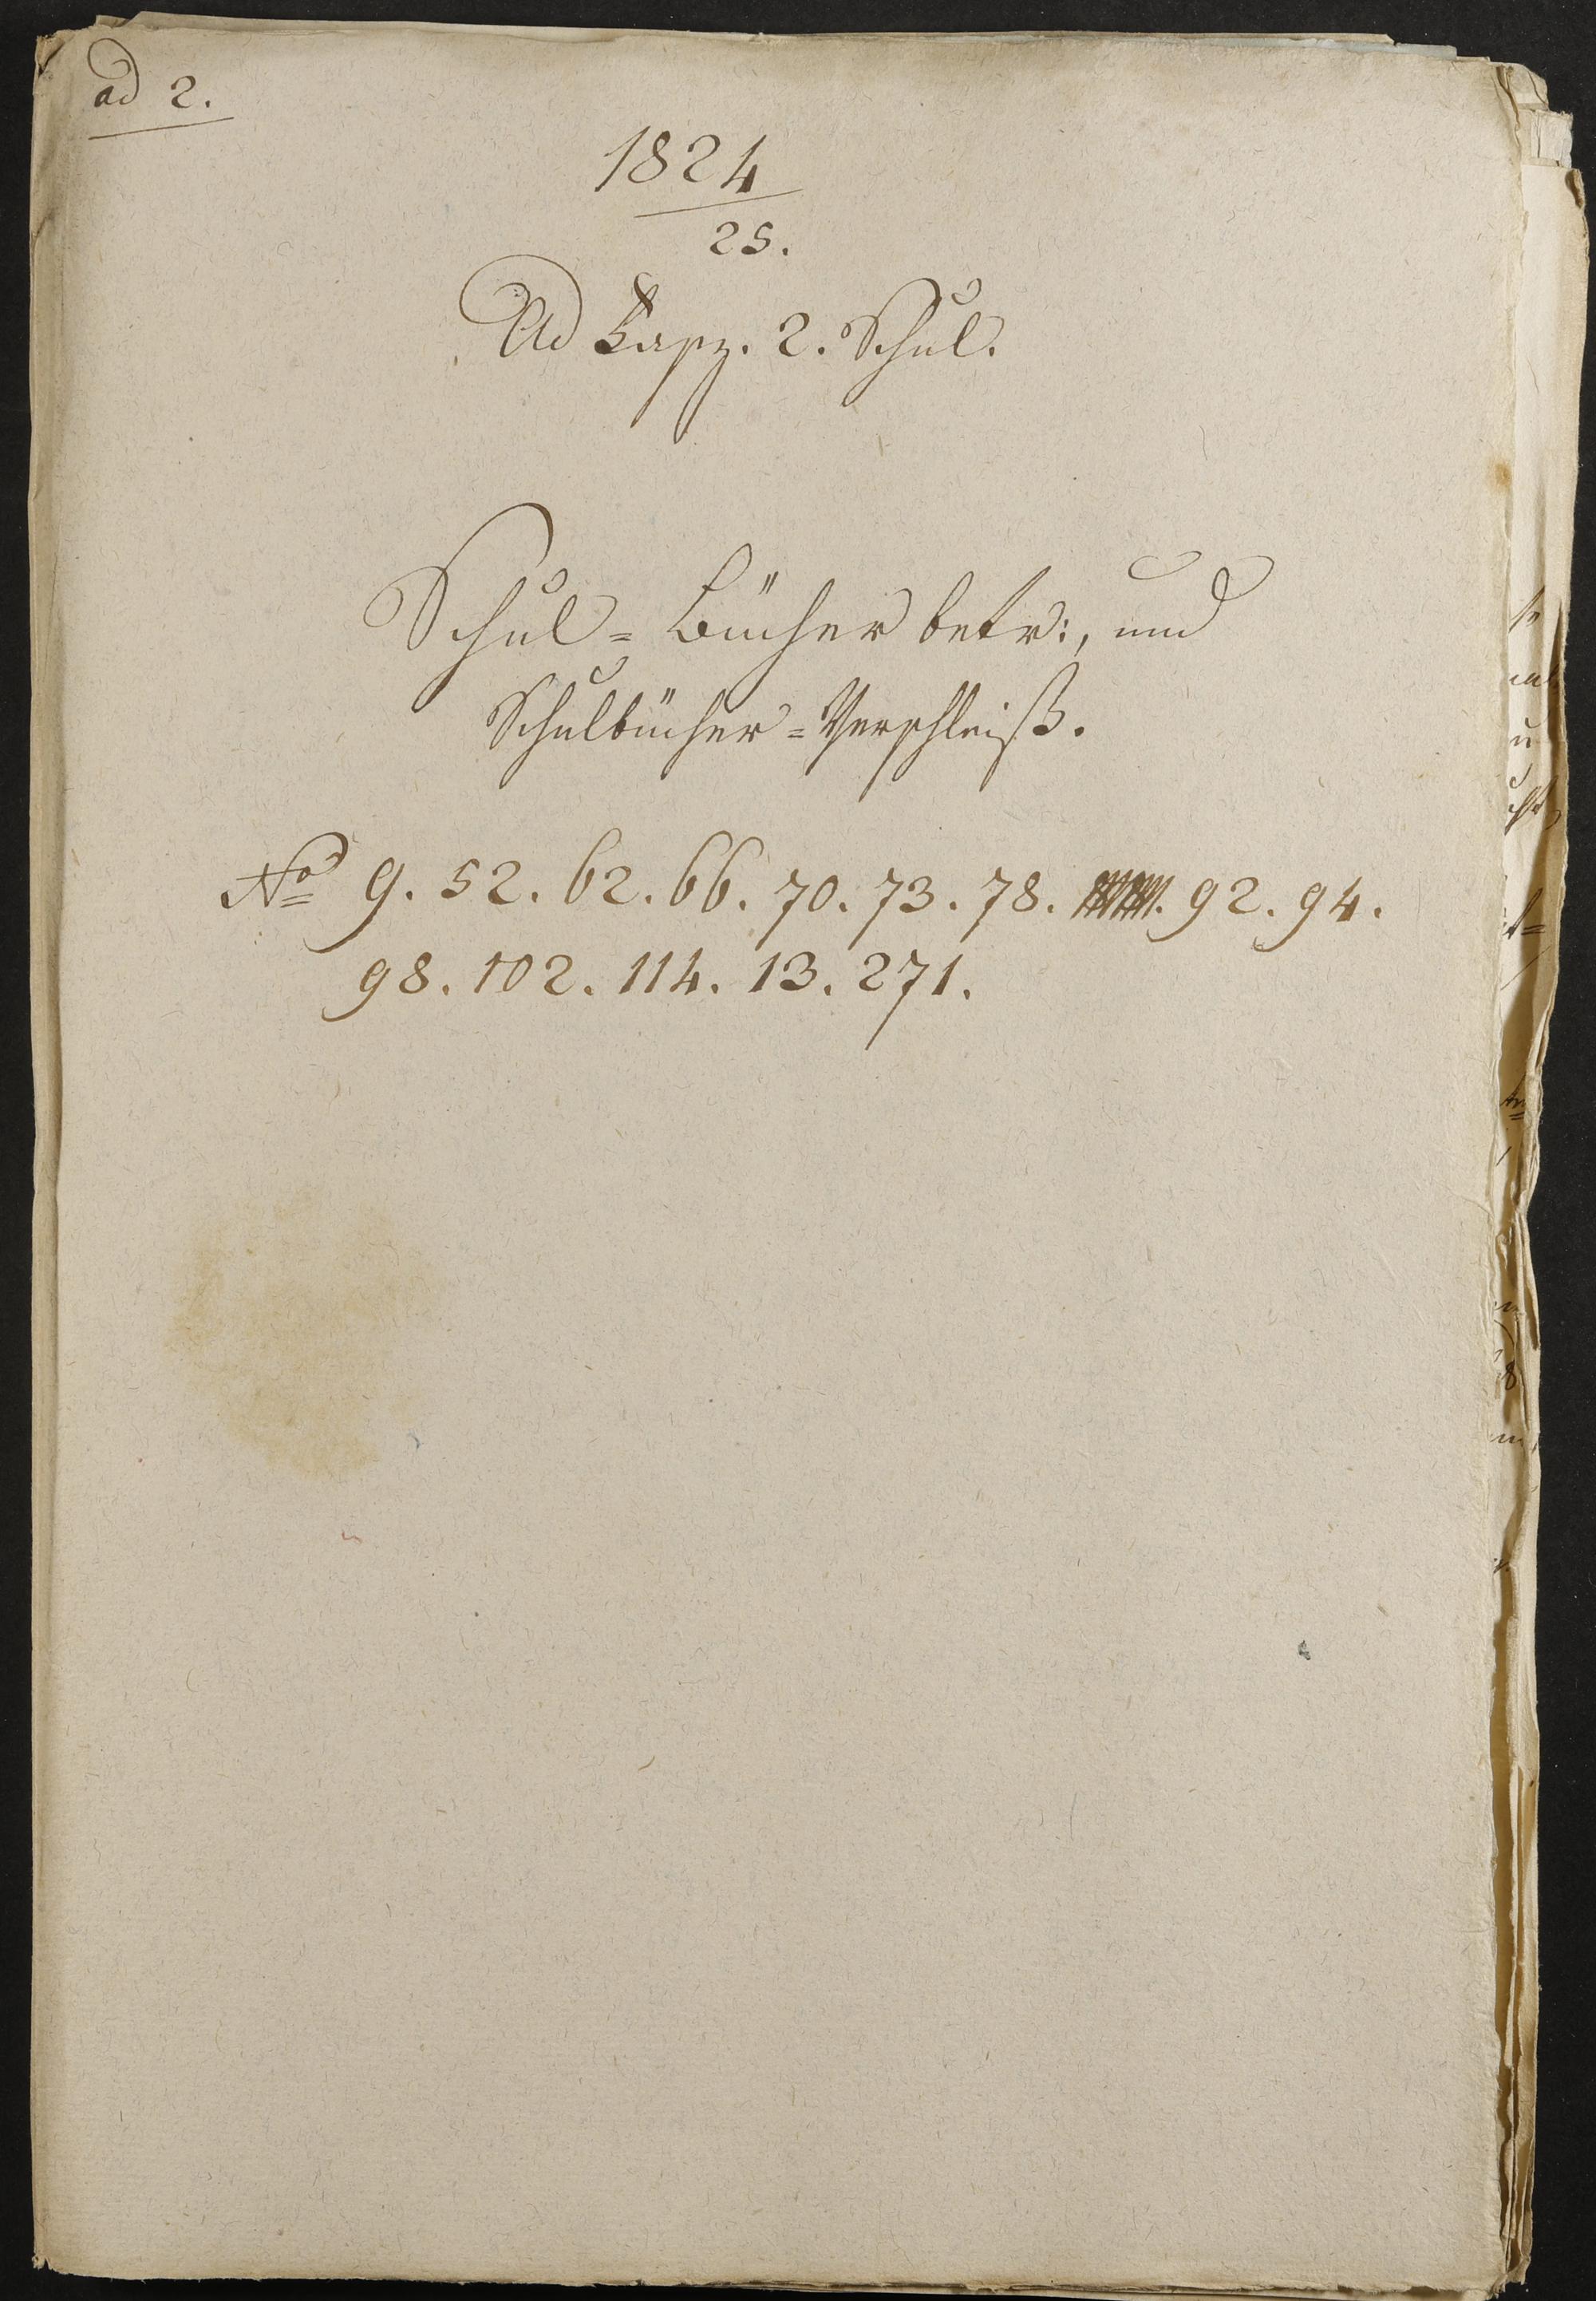 ad 2.
1824
25.
Ad Fasz. 2. Schul.
Schul = Bücher betr:, und
Schulbücher = Verschleiß.
No 9. 52. 62. 66. 70. 73. 78. 92. 94.
98. 102. 114. 13. 271.